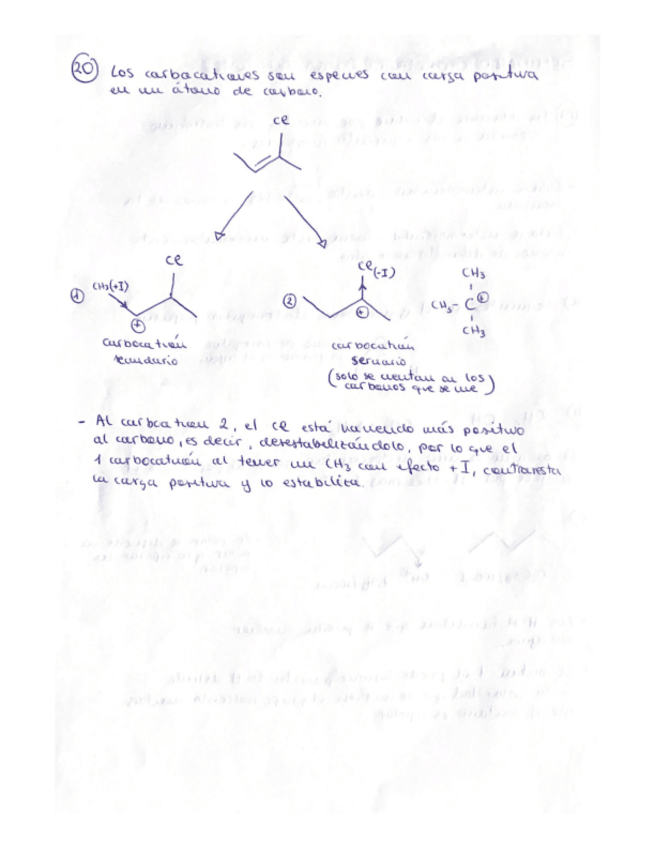 20 Los carbocationes son especies con carga positiva
en un átomo de carbono.
Cl
Cl
CH3(+I)
1
+
carbocatión
secundario
Cl(-I)
2
+
carbocatión
(solo se cuentan a los
carbonos que se une)
CH3
CH3- C+
CH3
- Al carbocation 2, el Cl está haciendo más positivo
al carbono, es decir, desestabilizándolo, por lo que el
1 carbocatión al tener un CH3 con efecto +I, contraresta
la carga positiva y lo estabiliza.